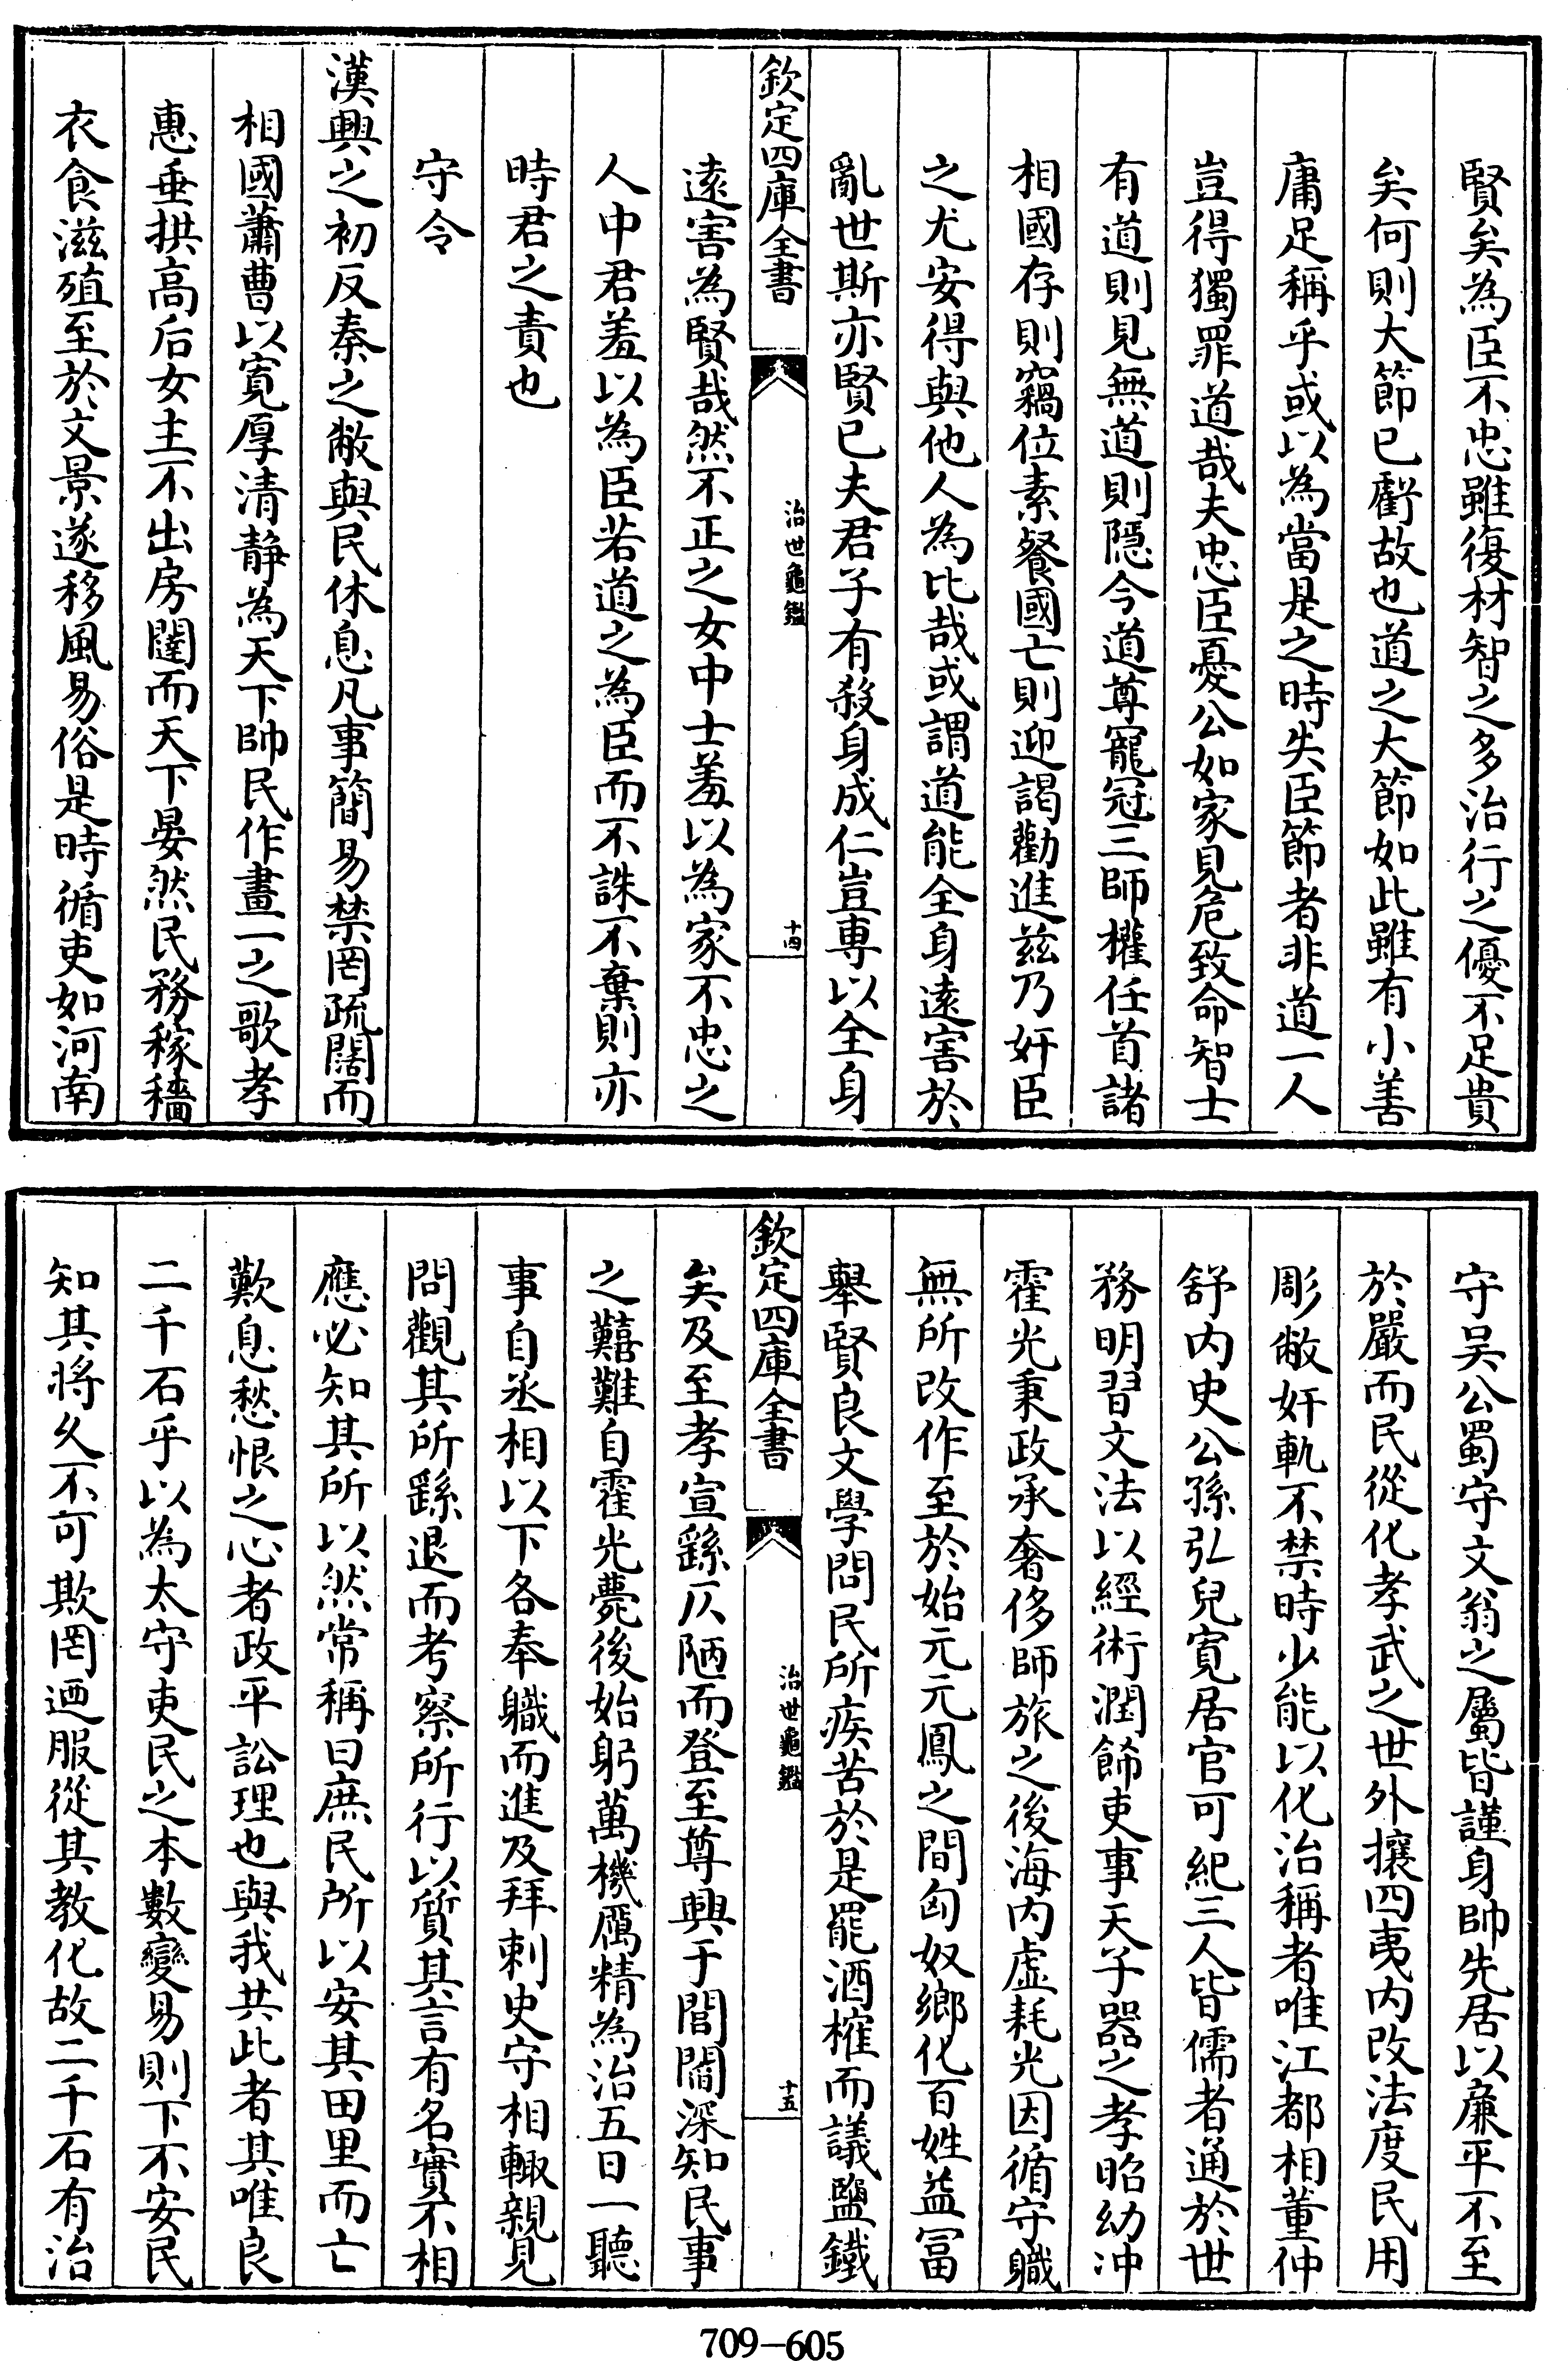 賢矣為臣不忠雖復材智之多治行之優不足貴
矣何則大節已虧故也道之大節如此雖有小善
庸足稱乎或以為當是之時失臣節者非道一人
豈得獨罪道哉夫忠臣憂公如家見危致命智士
有道則見無道則隱今道尊寵冠三師權任首諸
相國存則竊位素餐國亡則迎謁勸進兹乃奸臣
之尤安得與他人為比哉或謂道能全身遠害於
亂世斯亦賢已夫君子有殺身成仁豈專以全身
欽定四庫全書
治世龜鑑
十四
遠害為賢哉然不正之女中士羞以為家不忠之
人中君羞以為臣若道之為臣而不誅不棄則亦
時君之責也
守令
漢興之初反秦之敝與民休息凡事簡易禁罔疏闊而
相國蕭曹以寬厚清静為天下帥民作畫一之歌孝
惠垂拱高后女主不出房闥而天下晏然民務稼穡
衣食滋殖至於文景遂移風易俗是時循吏如河南
守吴公蜀守文翁之屬皆謹身帥先居以廉平不至
於嚴而民從化孝武之世外攘四夷内改法度民用
彫敝奸軌不禁時少能以化治稱者唯江都相董仲
舒内史公孫弘兒寛居官可紀三人皆儒者通於世
務明習文法以經術潤飾吏事天子器之孝昭幼冲
霍光秉政承奢侈師旅之後海内虚耗光因循守職
無所改作至於始元元鳳之間匈奴鄉化百姓益富
舉賢良文學問民所疾苦於是罷酒榷而議鹽鐵
欽定四庫全書
治世龜鑑
十五
矣及至孝宣繇仄陋而登至尊興于閭閻深知民事
之囏難自霍光薨後始躬萬機厲精為治五日一聽
事自丞相以下各奉職而進及拜刺史守相輒親見
問觀其所繇退而考察所行以質其言有名實不相
應必知其所以然常稱曰庶民所以安其田里而亡
歎息愁恨之心者政平訟理也與我共此者其唯良
二千石乎以為太守吏民之本數變易則下不安民
知其将久不可欺罔迺服從其教化故二千石有治
709-605